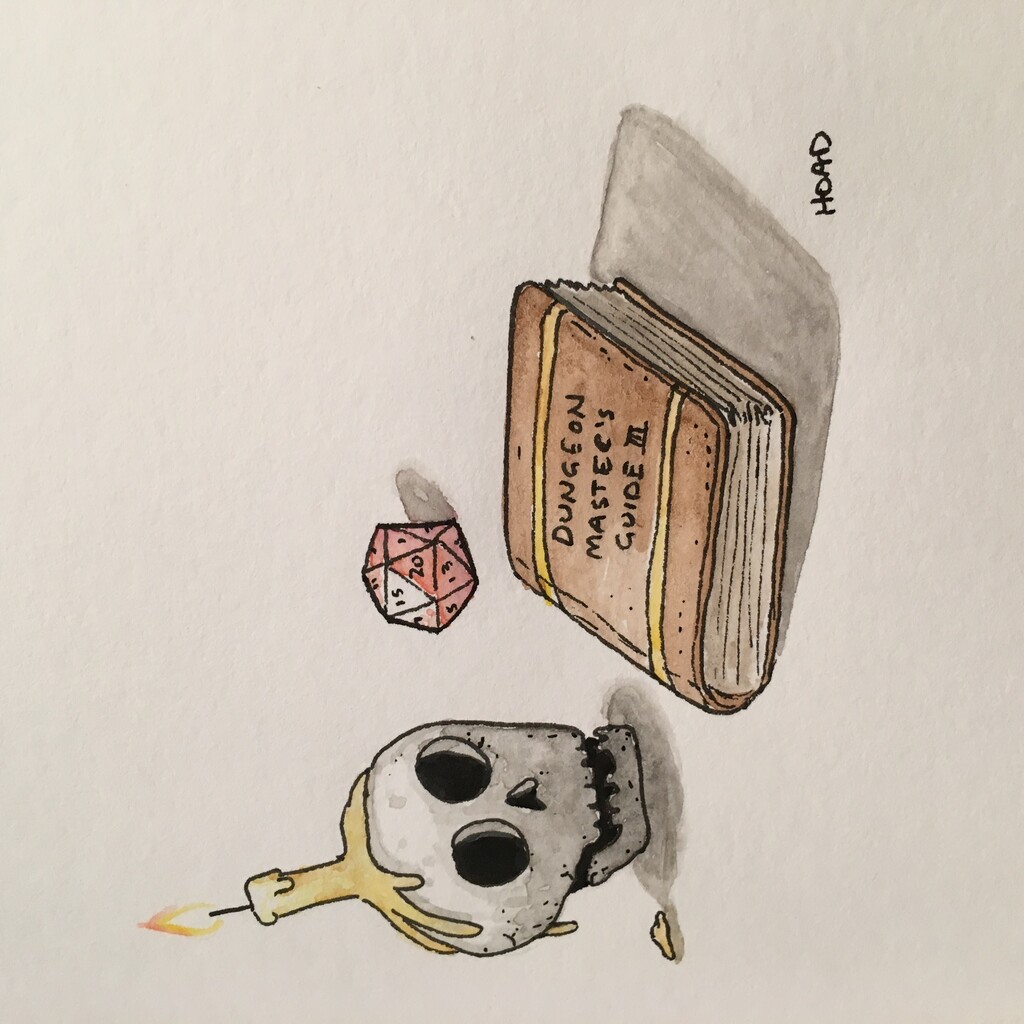 15
20
5
13
DUNGEON
MASTER'S
GUIDE III
HOAD